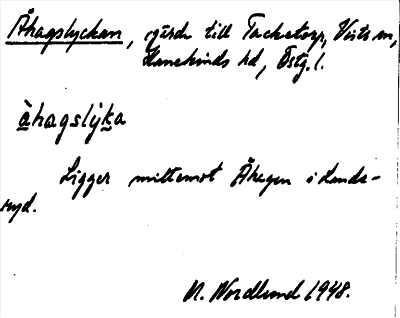 Åhagslyckan, gärde till Tacketorp, Vists sn,
Hanekinds hd, Östg. l.
àhagslýka
Ligger mittemot Åhagen i Lands-
ryd.
N. Nordlund 1948.